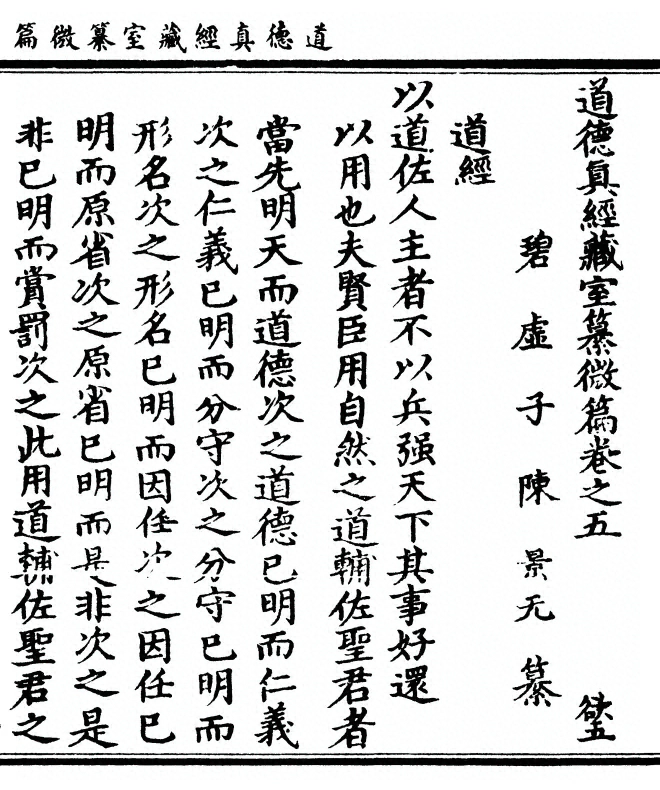 道德真經藏室纂微篇
道德真經藏室纂微篇卷之五 欲五
碧虛子陳景元纂
道經
以道佐人主者不以兵强天下其事好還
以用也夫賢臣用自然之道輔佐聖君者
當先明天而道德次之道德已明而仁義
次之仁義已明而分守次之分守已明而
形名次之形名已明而因任次之因任已
明而原省次之原省已明而是非次之是
非已明而賞罰次之此用道輔佐聖君之